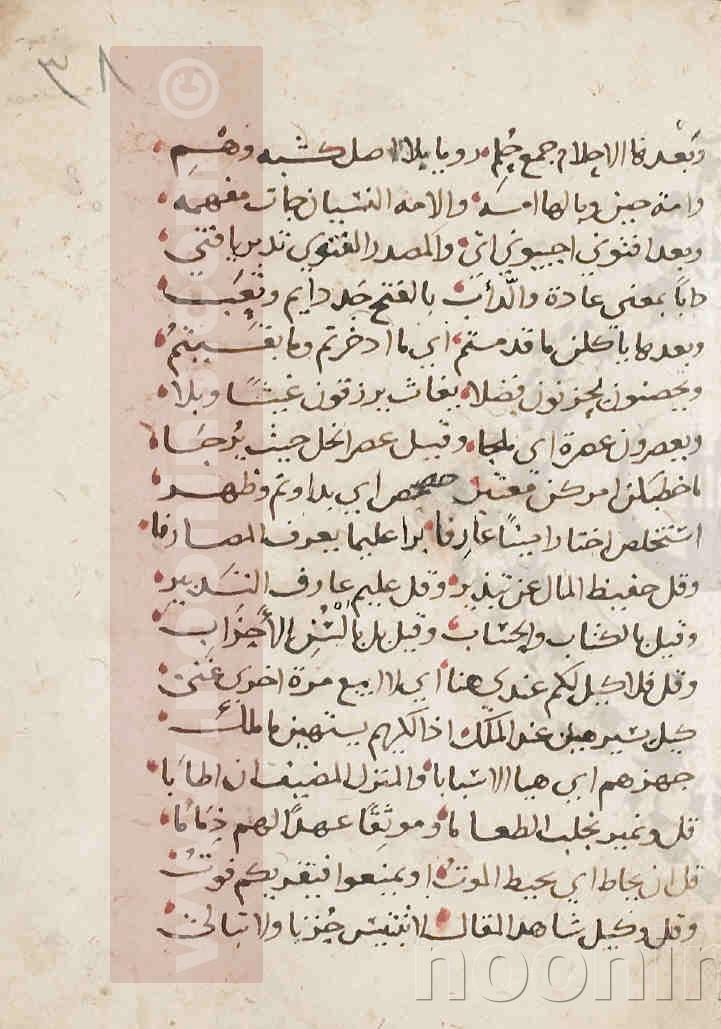 ٨٣
وبعدها الاحلام جمع حلم رويا بلا اصل كشبه وهم
وامة حين وبالها امه والامه النسيان مات مفهمه
وبعد افتوني اجيبوني اتى والمصدر الفتوى تدبر يا فتى
دابا بمعنى عادة والدأب بالفتح جد دايم وتعب
وبعدها ياكلن ما قدمتم اي ما ادخرتم وما بقيتم
ويحصنون يخزنون فضلا يغاث يرزقون غيثا وبلا
ويعصرون عصرة اي ملجا وقيل عصر النحل حيث يرجا
ما خطبكن امركن حصحص اي بدا وتم وظهر
استخلص اختار امينا عارفا برا عليما يعرف المصارفا
وقل حفيظ المال عن تبذير وقل عليم عارف التدبير
وقيل بالكتاب والحساب وقيل بل بالسن الاحزاب
وقل فلا كيل لكم عندي هنا اي لا ابيع مرة اخرى غنى
كيل يسير هين عند الملك اذا كليهم يستهين ما ملك
جهزهم اي هيا الاسبابا والمنزل المضيف ان اطابا
قل ونمير نجلب الطعاما وموثقا عهدا لهم ذماما
قل ان يحاط اي يحيط الموت او يمنعوا فيعتريكم فوت
وقل وكيل شاهد المقال لا تبتئس حزنا ولا تبالي
noonin